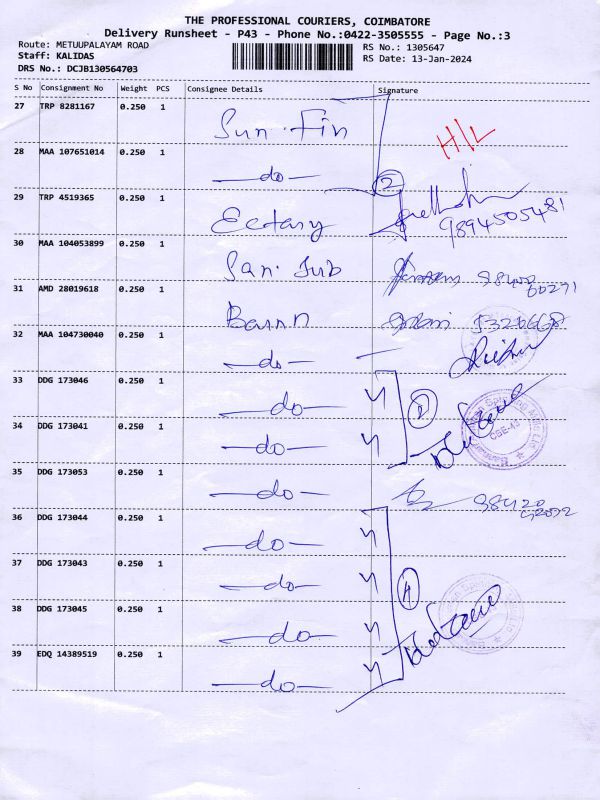 THE PROFESSIONAL COURIERS, COIMBATORE
Delivery Runsheet - P43 - Phone No.:0422-3505555 - Page No.:3
Route: METUUPALAYAM ROAD
RS No.: 1305647
Staff: KALIDAS
RS Date: 13-Jan-2024
DRS No.: DCJB130564703
S No Consignment No Weight PCS Consignee Details Signature
27 TRP 8281167 0.250 1
Sun. Fin
H/L
28 MAA 107651014 0.250 1
—do— 2
29 TRP 4519365 0.250 1
Ectasy 9894505481
30 MAA 104053899 0.250 1
San. Sub
31 AMD 28019618 0.250 1
32 MAA 104730040 0.250 1
—do—
33 DDG 173046 0.250 1
—do—
34 DDG 173041 0.250 1
—do—
35 DDG 173053 0.250 1
—do—
36 DDG 173044 0.250 1
—do—
37 DDG 173043 0.250 1
—do— 4
38 DDG 173045 0.250 1
—do—
39 EDQ 14389519 0.250 1
—do—